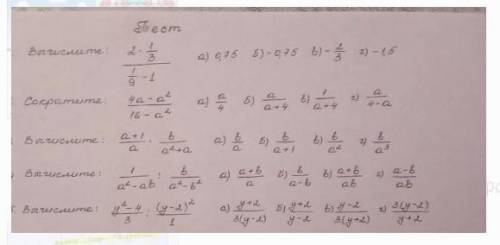 Тест
Вычислите: (2 · 1/3) / (1/9 - 1) а) 0,75 б) -0,75 в) -2/3 г) -1,5
Сократите: (4a - a²)/(16 - a²) а) a/4 б) a/(a+4) в) 1/(a+4) г) a/(4-a)
Вычислите: (a+1)/a · b/(a²+a) а) b/a б) b/(a+1) в) b/a² г) b/a³
Вычислите: 1/(a²-ab) : b/(a²-b²) а) (a+b)/a б) b/(a-b) в) (a+b)/ab г) (a-b)/ab
Вычислите: (y²-4)/3 : (y-2)²/1 а) (y+2)/3(y-2) б) (y+2)/(y-2) в) (y-2)/3(y+2) г) 3(y-2)/(y+2)